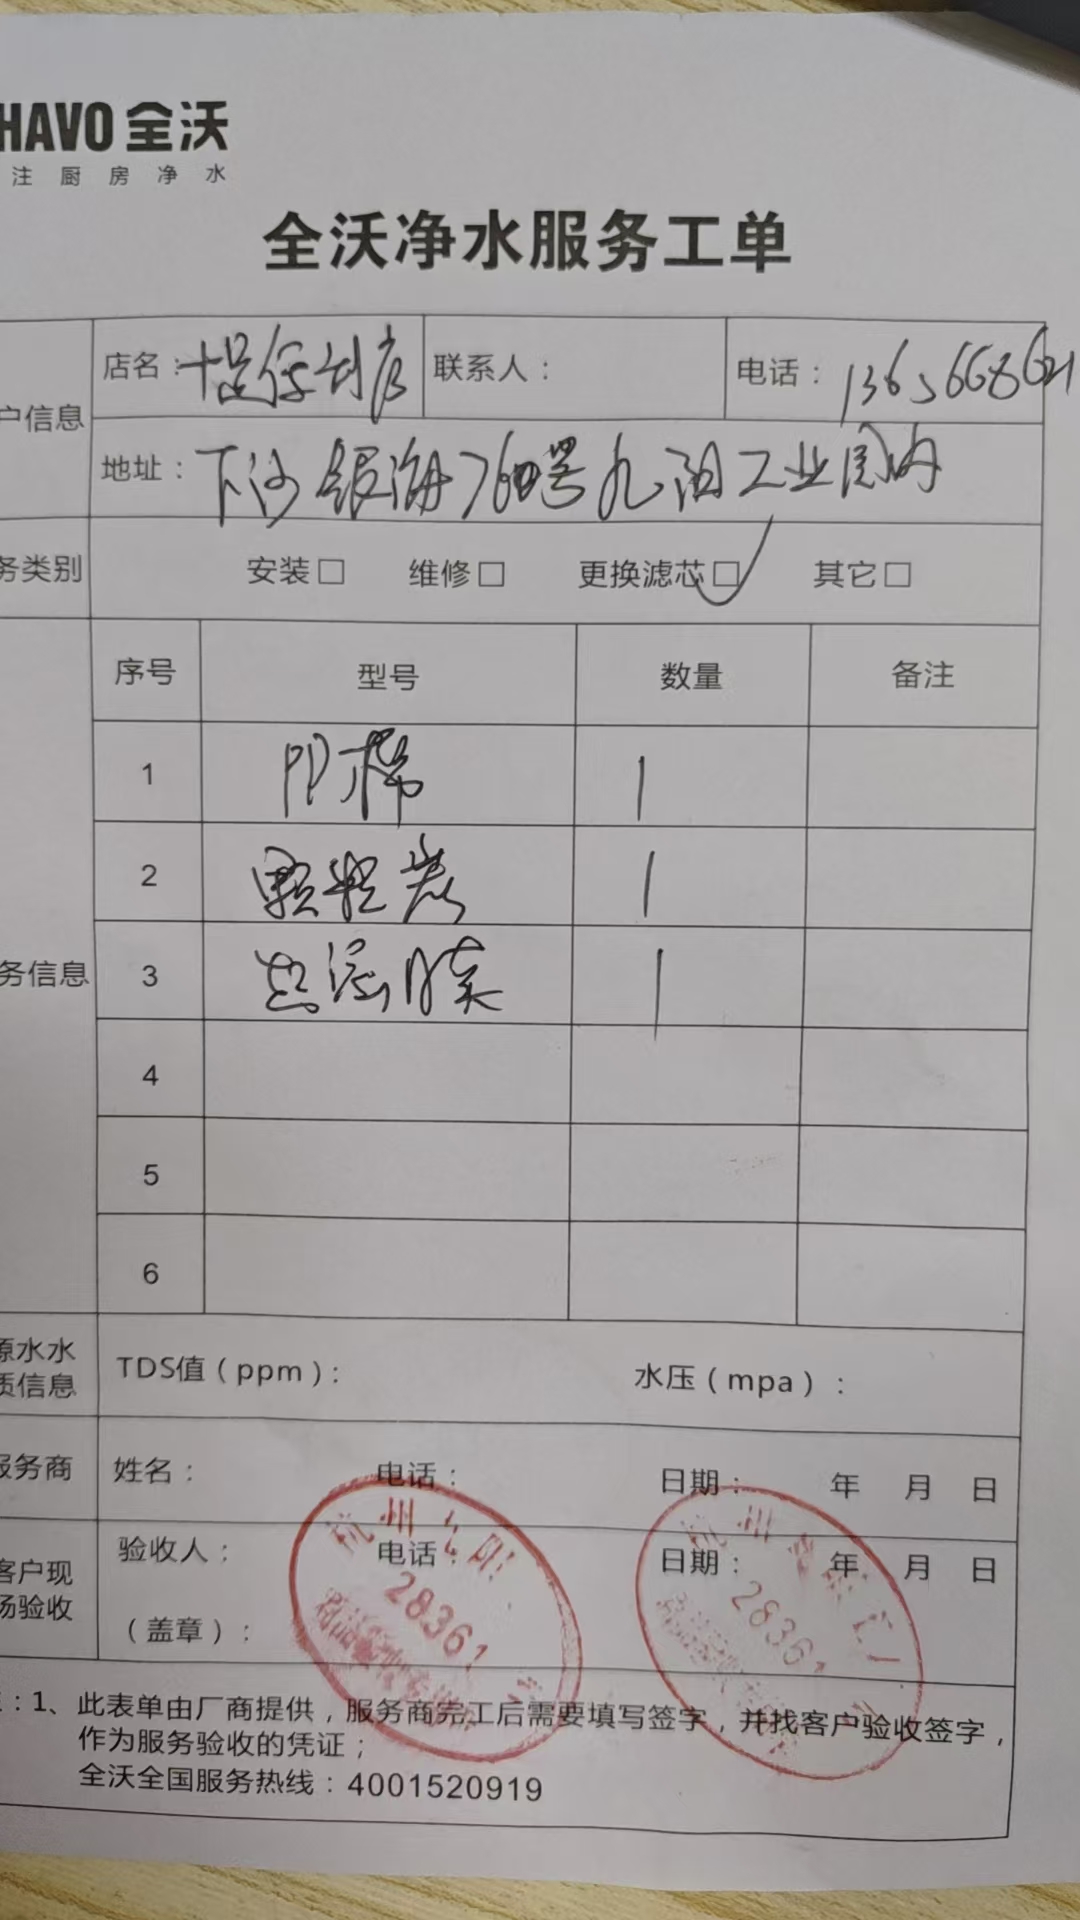 HAVO 全沃
注厨房净水
全沃净水服务工单
户信息
店名：
联系人：
电话：
地址：下沙银海760号九阳工业园内
务类别
安装□ 维修□ 更换滤芯□ 其它□
序号 型号 数量 备注
1 PP棉 1
2 颗粒炭 1
务信息
3 超滤膜 1
4
5
6
源水水质信息
TDS值（ppm）：
水压（mpa）：
服务商
姓名：
电话：
日期：
年 月 日
客户现场验收
验收人：
电话：
日期：
年 月 日
（盖章）：
杭州
28361
杭州
28361
：1、此表单由厂商提供，服务商完工后需要填写签字，并找客户验收签字，
作为服务验收的凭证；
全沃全国服务热线：4001520919